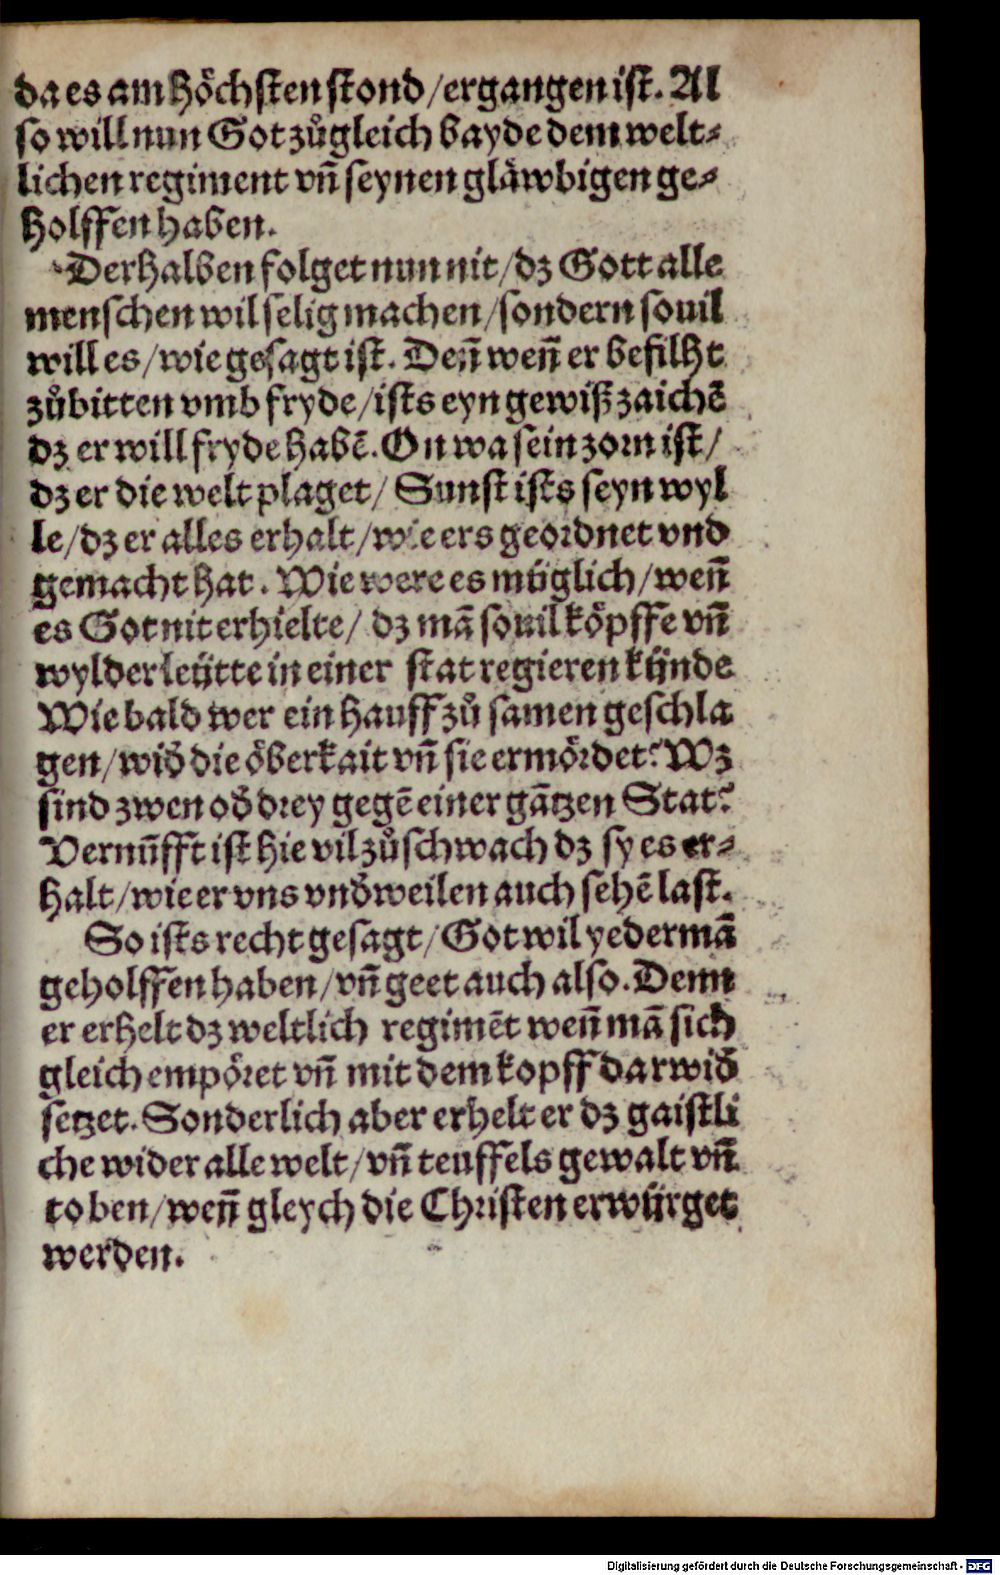 da es am höchsten stond/ergangen ist. Al
so will nun Got zůgleich bayde dem welt⸗
lichen regiment vñ seynen gläwbigen ge⸗
holffen haben.
Derhalben folget nun nit/dz Gott alle
menschen wil selig machen/sondern souil
will es/wie gesagt ist. Deñ weñ er befilht
zůbitten vmb fryde/ists eyn gewiß zaichē
dz er will fryde habē. On wa sein zorn ist/
dz er die welt plaget/ Sunst ists seyn wyl
le/dz er alles erhalt/wie ers geordnet vnd
gemacht hat. Wie were es müglich/weñ
es Got nit erhielte/ dz mā souil köpffe vñ
wylder leütte in einer stat regieren künde
Wie bald wer ein hauff zů samen geschla
gen/wid̄ die öberkait vñ sie ermördet? Wz
sind zwen od̄ drey gegē einer gātzen Stat?
Vernūfft ist hie vil zů schwach dz sy es er⸗
halt/wie er vns vnd̄weilen auch sehē last.
So ists recht gesagt/Got wil yedermā
geholffen haben/vñ geet auch also. Denn
er erhelt dz weltlich regimēt weñ mā sich
gleich empöret vñ mit dem kopff darwid̄
setzet. Sonderlich aber erhelt er dz gaistli
che wider alle welt/vñ teuffels gewalt vñ
toben/weñ gleych die Christen erwürget
werden.
Digitalisierung gefördert durch die Deutsche Forschungsgemeinschaft - DFG